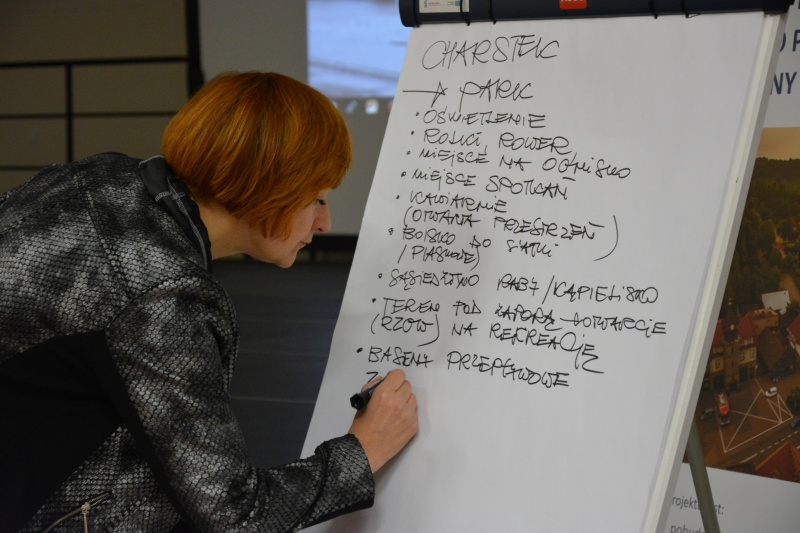 CHARSTEK
→ PARK
• OŚWIETLENIE
• ROLKI, ROWER,
• MIEJSCE NA OGNISKO
• MIEJSCE SPOTKAŃ
• KAWIARNIE
(OTWARTA PRZESTRZEŃ)
• BOISKO DO SIATKI
/ PIASKOWE)
• SĄSIEDZTWO RABY / KĄPIELISKO
• TEREN POD ZAPORĄ → OTWARCIE
(RZGW) NA REKREACJĘ
• BASENY PRZEPŁYWOWE
NY
rojekt
st: